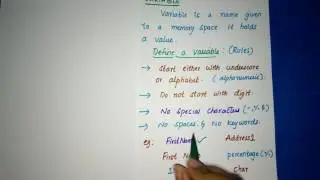 VARIABLE
Variable is a name given
to a memory space it holds
a value.
Define a variable: (Rules)
→ start either with underscore
or alphabet. (alphanumeric)
→ Do not start with digit.
→ No special character (-, %, &)
→ No spaces & No keywords.
eg: FirstName ✓ Address1
First N percentage(%)
Char